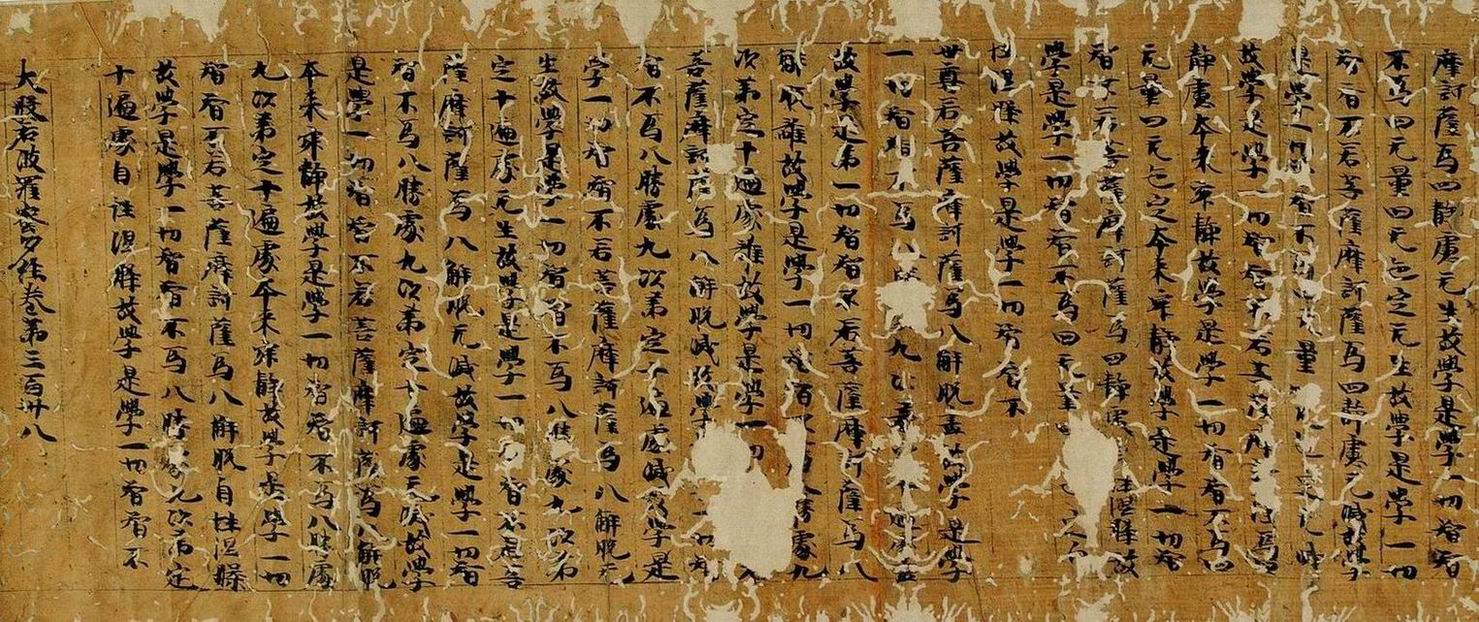 摩訶薩為四静慮无生故學是學一切智智
不為四无量四无色定无生故學是學一切
智智不若菩薩摩訶薩為四静慮无滅故學
是學一切智智不為四无量
故學是學一切智智不若菩薩摩訶薩為四
静慮本来寂静故學是學一切智智不為四
无量四无色定本来寂静故學是學一切智
智不若菩薩摩訶薩為四静慮自性涅槃故
學是學一切智智不為四无量四
性涅槃故學是學一切智智不
世尊若菩薩摩訶薩為八解脱盡故學是學
一切智智不為八九次第
故學是學一切智智不若菩薩摩訶薩為八
解脱離故學是學一切智智不勝處九
次第定十遍處離故學是學一切
菩薩摩訶薩為八解脱滅故學一切智
智不為八勝處九次第定十遍處滅故學是
學一切智智不若菩薩摩訶薩為八解脱无
生故學是學一切智智不為八勝處九次第
定十遍處无生故學是學一切智智不若菩
薩摩訶薩為八解脱无滅故學是學一切智
智不為八勝處九次第定十遍處无滅故學
是學一切智智不若菩薩摩訶薩為八解脱
本来寂静故學是學一切智智不為八勝處
九次第定十遍處本来寂静故學是學一切
智智不若菩薩摩訶薩為八解脱自性涅槃
故學是學一切智智不為八勝處九次第定
十遍處自性涅槃故學是學一切智智不
大般若波羅蜜多經卷第三百卅八